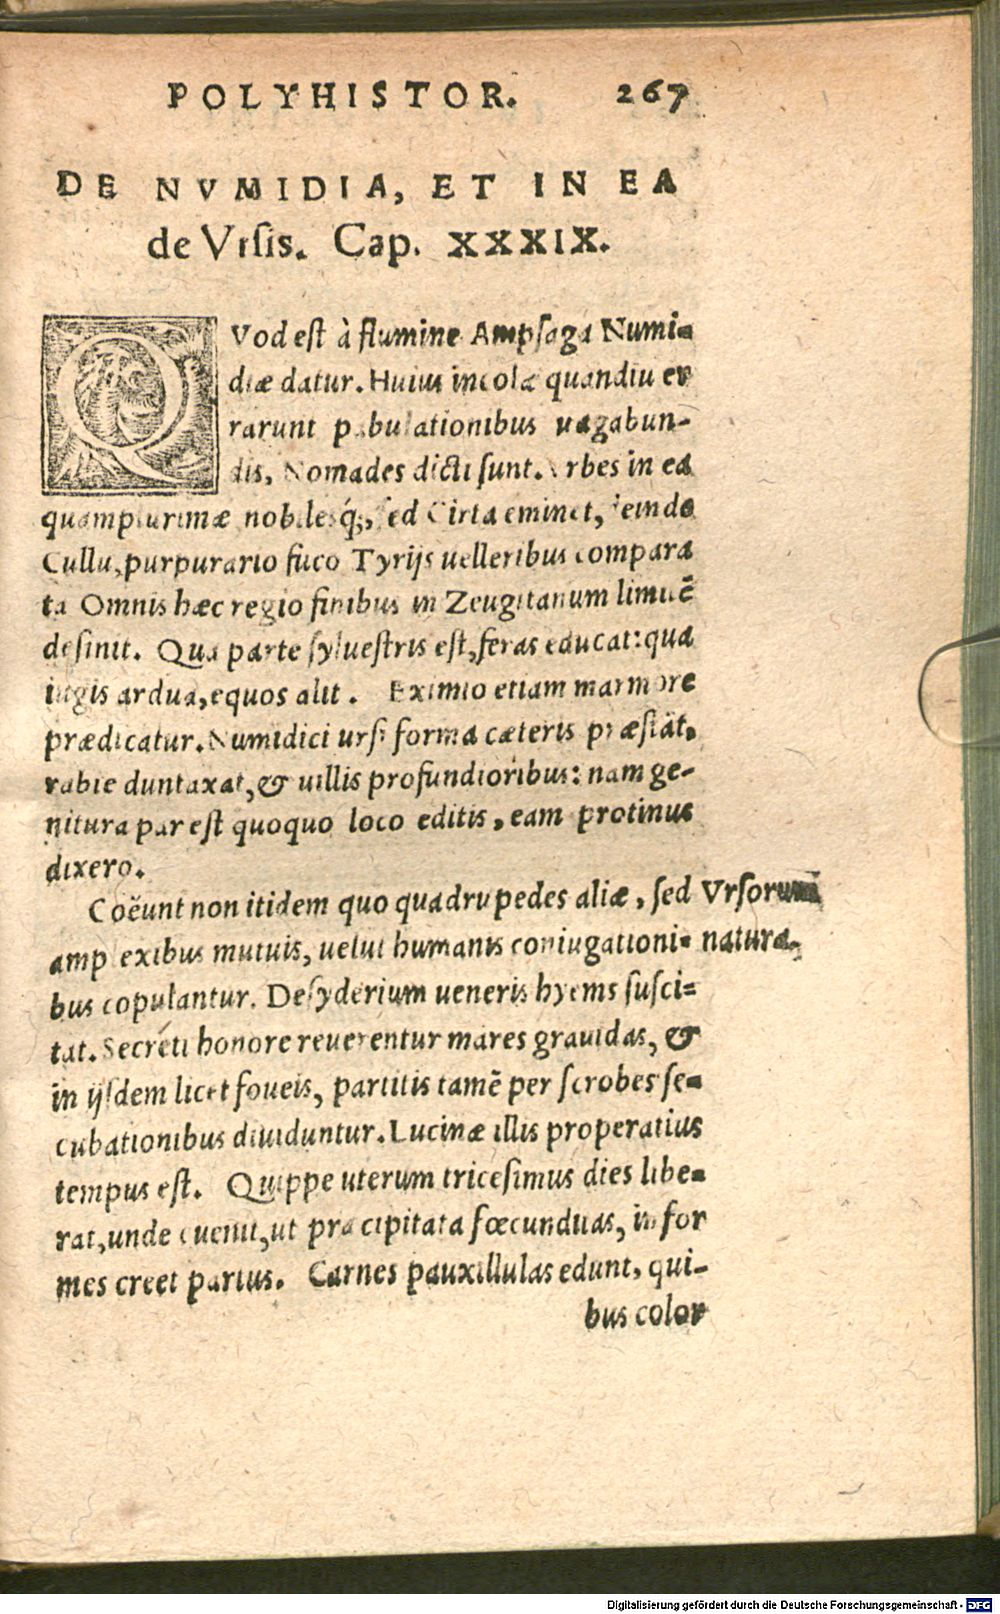 POLYHISTOR. 267
DE NVMIDIA, ET IN EA
de Vrsis. Cap. XXXIX.
QVod est à flumine Ampsaga Numi=
diæ datur. Huius incolæ quandiu er
rarunt pabulationibus uagabun-
dis, Nomades dicti sunt. Vrbes in ea
quamplurimæ nobilesq́;, sed Cirta eminet, deinde
Cullu, purpurario fuco Tyrijs uelleribus compara
ta Omnis hæc regio finibus in Zeugitanum limitē
desinit. Qua parte syluestris est, feras educat: qua
iugis ardua, equos alit. Eximio etiam marmore
prædicatur. Numidici ursi forma cæteris præstāt,
rabie duntaxat, & uillis profundioribus: nam ge-
nitura par est quoquo loco editis, eam protinus
dixero.
Coëunt non itidem quo quadrupedes aliæ, sed
Vrsorum
natura.
amplexibus mutuis, uelut humanis coniugationi=
bus copulantur. Desyderium ueneris hyems susci=
tat. Secreti honore reuerentur mares grauidas, &
in ijsdem licet foueis, partitis tamē per scrobes se=
cubationibus diuiduntur. Lucinæ illis properatius
tempus est. Quippe uterum tricesimus dies libe=
rat, unde euenit, ut præcipitata fœcunditas, infor
mes creet partus. Carnes pauxillulas edunt, qui-
bus color
Digitalisierung gefördert durch die Deutsche Forschungsgemeinschaft - DFG